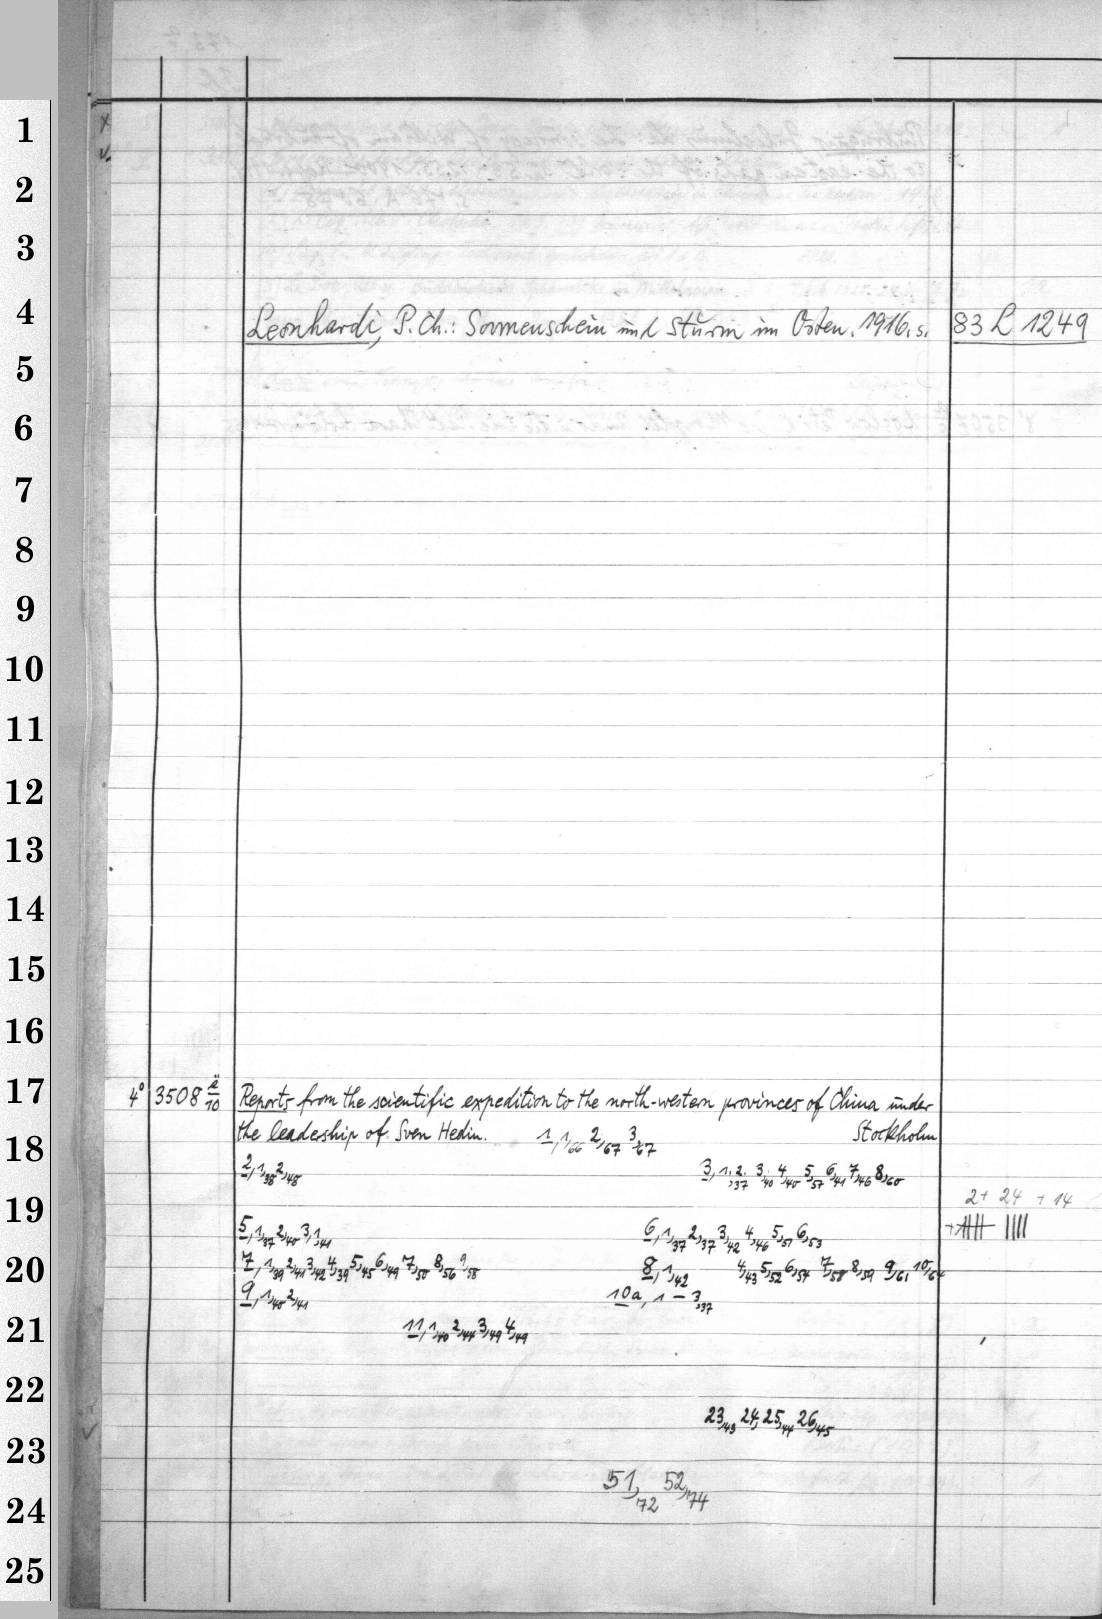 1
2
3
4
Leonhardi, P. Ch.: Sonnenschein und Sturm im Osten. 1916. s. 83 L 1249
5
6
7
8
9
10
11
12
13
14
15
16
17
4° 3508 ä/10 Reports from the scientific expedition to the north-western provinces of China under
the leadership of Sven Hedin. 1, 1,66 2,67 3,67 Stockholm
18
2, 1,38 2,40 3, 1,2,37 3,40 4,40 5,57 6,41 7,46 8,60
2 + 24 + 14
19
5, 1,37 2,40 3,1,41 6, 1,37 2,37 3,42 4,46 5,51 6,53
20
7, 1,39 2,41 3,42 4,39 5,45 6,49 7,50 8,56 9,58 8, 1,42 4,43 5,52 6,54 7,58 8,59 9,61 10,64
9, 1,40 2,41 10a, 1 - 3,37
21
11, 1,40 2,44 3,49 4,49
22
23,43 24, 25,44 26,45
23
51,72 52,74
24
25